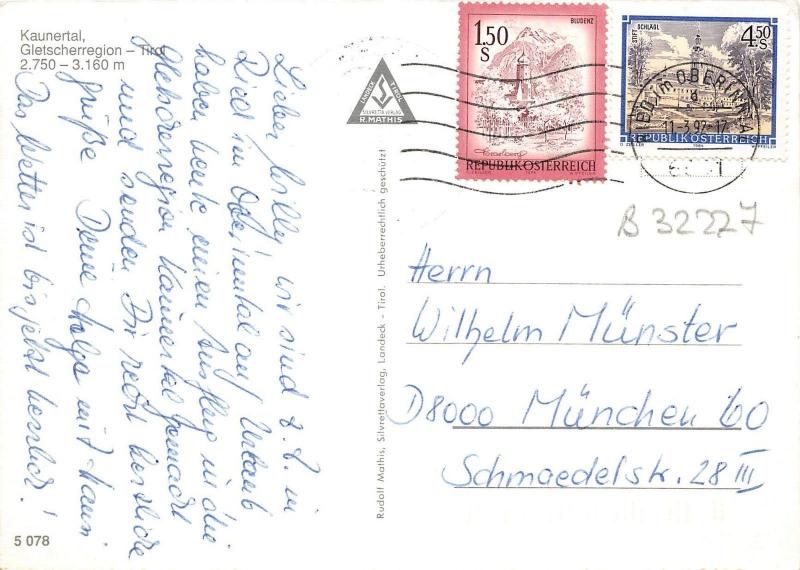 Kaunertal,
Gletscherregion – Tirol
2.750 – 3.160 m
Lieber Willy, wir sind z. Z. in
Ried im Oberinntal auf Urlaub
haben heute einen Ausflug in die
Gletscherregion Kaunertal gemacht
und senden Dir recht herzliche
Grüße Deine Helga mit Hann
Das Wetter ist bis jetzt herrlich!
5 078
Rudolf Mathis, Silvrettaverlag, Landeck – Tirol. Urheberrechtlich geschützt!
LANDECK TIROL
SILVRETTA VERLAG
R. MATHIS
1.50 S
BLUDENZ
Vorarlberg
REPUBLIK ÖSTERREICH
STIFT SCHLÄGL
4.50 S
REPUBLIK ÖSTERREICH
IM OBERINNTAL
B 32227
Herrn
Wilhelm Münster
D8000 München 60
Schmaedelstr. 28 III